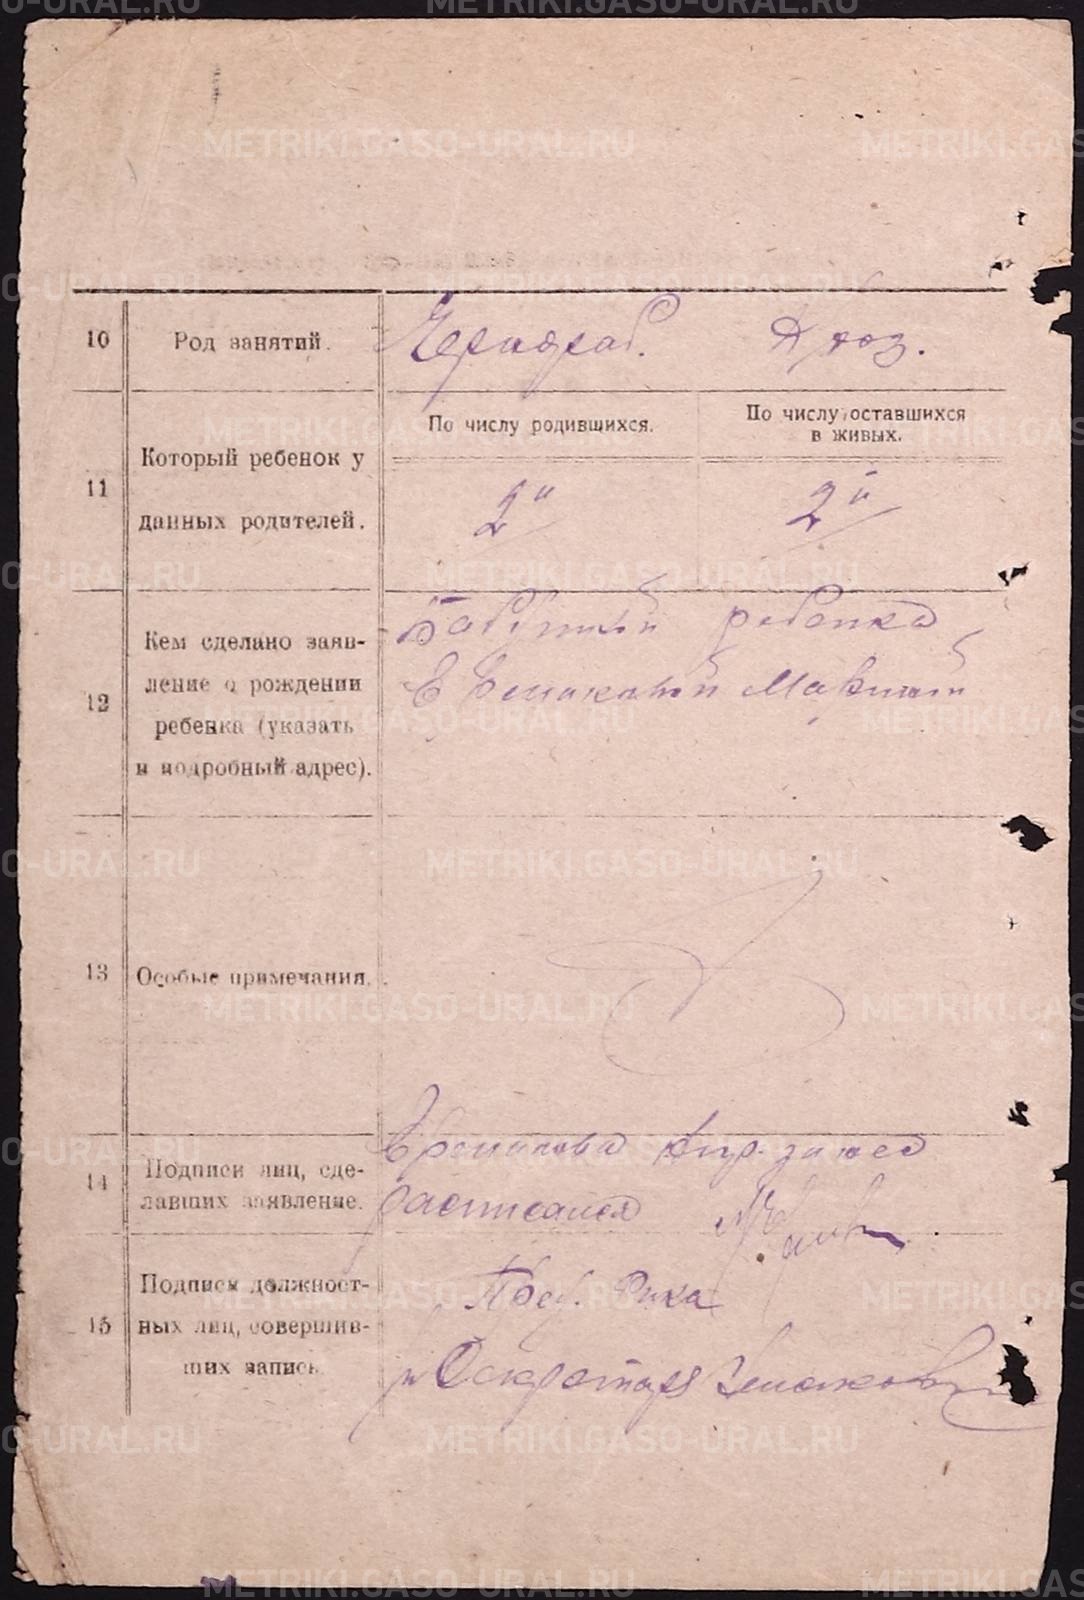 METRIKI.GASO-URAL.RU
10
Род занятий.
Чернораб.
Д хоз.
11
Который ребенок у
данных родителей.
По числу родившихся.
По числу оставшихся
в живых.
2й
2й
12
Кем сделано заяв-
ление о рождении
ребенка (указать
и подробный адрес).
Бабушкой ребенка
13
Особые примечания.
14
Подписи лиц, сде-
лавших заявление.
расписался
15
Подписи должност-
ных лиц, совершив-
ших запись.
Пред. Рика
Секретаря